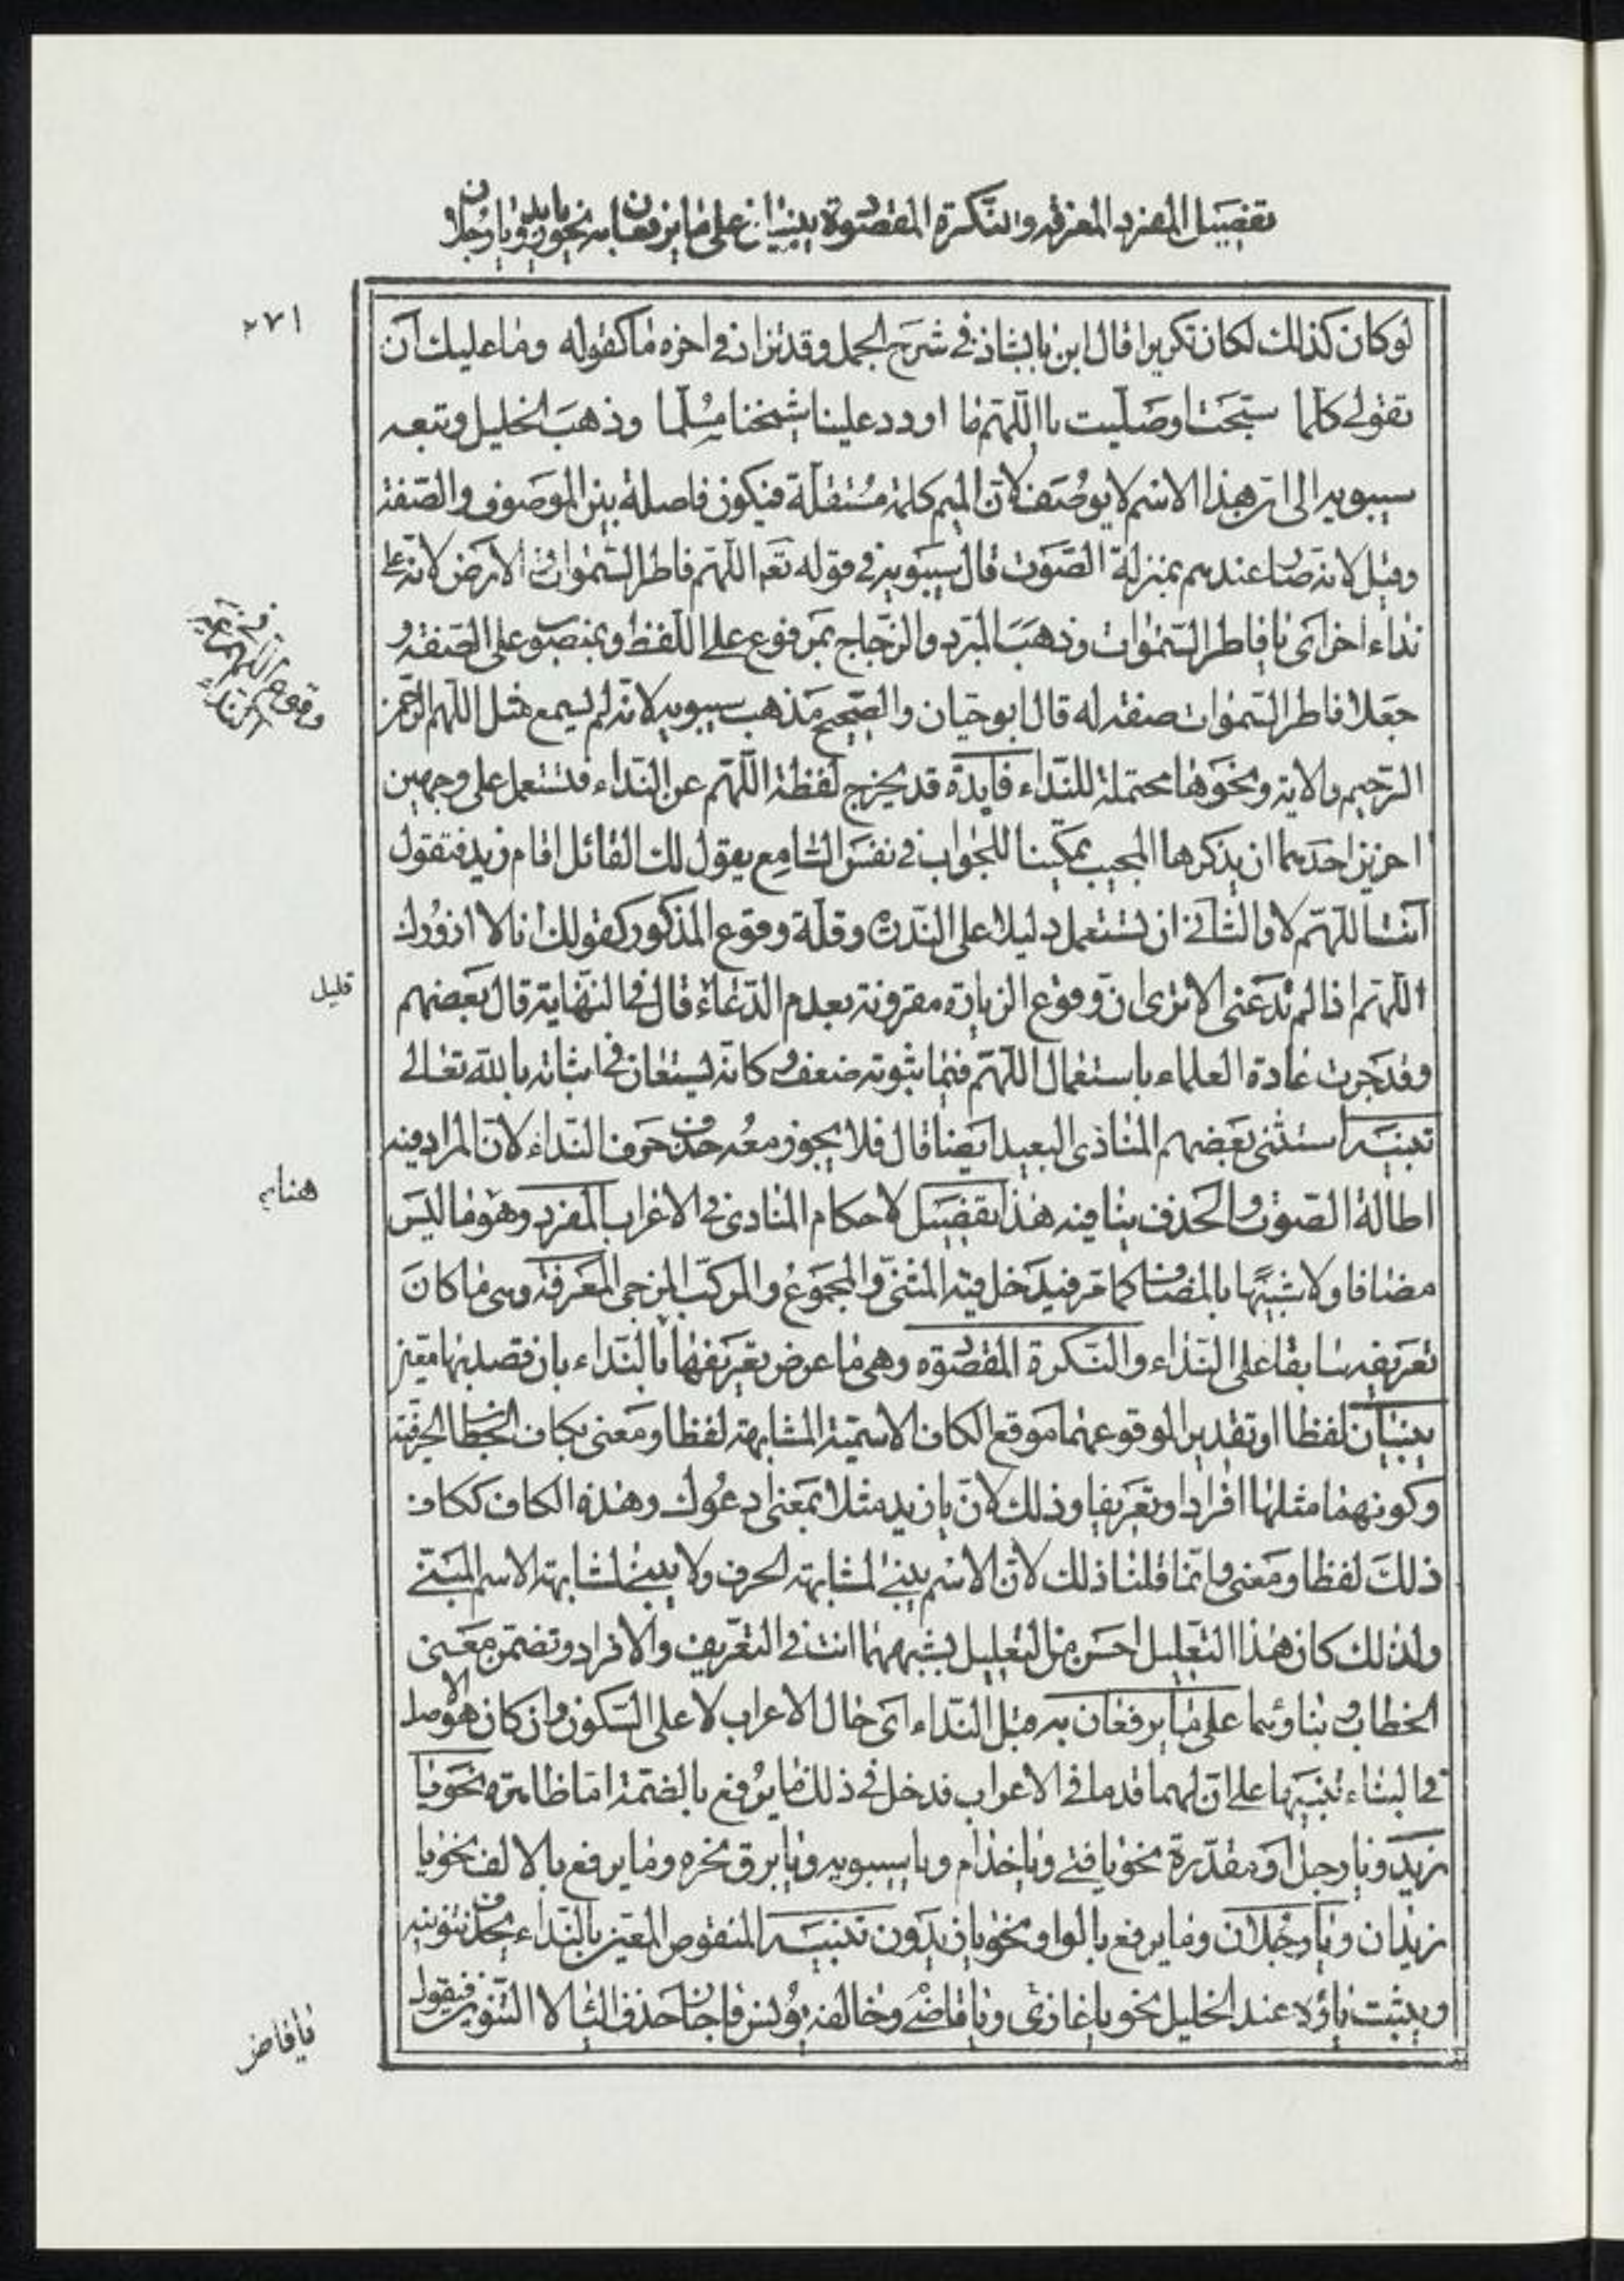 تفصيل المفرد المعرفه والنكرة المقصوة يبنيان على ما يرفعان به نحو يا زيد ويا رجلان
٢٧١
لو كان كذالك لكان تكريرا قال ابن بابشاذ في شرح الجمل وقد تزاد في اخره ما كقوله وما عليك ان
تقولى كلما سبحت او صليت يا اللهم ما اردد علينا شيخنا مسلما وذهب الخليل وتبعه
سيبويه الى ان هذا الاسم لا يوصف لان الميم كلمة مستقلة فيكون فاصلة بين الموصوف والصفة
وقيل لانه صار عندهم بمنزلة الصوت قال سيبويه في قوله تعم اللهم فاطر السموات والارض لانه على
نداء اخر اى يا فاطر السموات وذهب المبرد والزجاج بمرفوع على اللفظ وبمنصوب على الصفة و
جعلا فاطر السموات صفة له قال ابو حيان والصحيح مذهب سيبويه لانه لم يسمع مثل اللهم الرحمن
الرحيم والاية ونحوها محتملة للنداء فايدة قد يخرج لفظة اللهم عن النداء فتستعمل على وجهين
اخرين احدهما ان يذكرها المجيب تمكينا للجواب في نفس السامع يقول لك القائل اقام زيد فتقول
انت اللهم لا والثاني ان تستعمل دليلا على الندرة وقلة وقوع المذكور كقولك انا لا ازورك
اللهم اذا لم تدعنى الا ترى ان وقوع الزيارة مقرونة بعدم الدعاء قال في النهاية قال بعضهم
قليل
وقد جرت عادة العلماء باستعمال اللهم فيما ثبوته ضعف وكانه يستعان في اثباته بالله تعالى
تنبيه استثنى بعضهم المنادى البعيد ايضا قال فلا يجوز معه حذف حرف النداء لان المراد فيه
اطالة الصوت والحذف ينافيه هذا تفصيل لاحكام المنادى في الاعراب المفرد وهو ما ليس
مضافا ولا شبيها بالمضاف كما مر فيدخل فيه المثنى والمجموع والمركب المزجى المعرفة وهى ما كان
تعريفه سابقا على النداء والنكرة المقصوة وهى ما عرض تعريفها بالنداء بان قصد بها معين
يبنيان لفظا او تقديرا لوقوعهما موقع الكاف الاسمية المشابهة لفظا ومعنى بكاف الخطاب الحرفية
وكونهما مثلها افرادا وتعريفا وذلك لان يا زيد مثلا بمعنى ادعوك وهذه الكاف ككاف
ذلك لفظا ومعنى وانما قلنا ذلك لان الاسم يبنى لمشابهة الحرف ولا يبنى لمشابهة الاسم المبنى
ولذلك كان هذا التعليل احسن من التعليل بشبههما انت في التعريف والافراد وتضمن معنى
الخطاب وبناؤهما على ما يرفعان به قبل النداء اى حال الاعراب لا على السكون وان كان هو الاصل
في البناء تنبيها على ان لهما قدما في الاعراب فدخل في ذلك ما يرفع بالضمة اما ظاهرة نحو يا
زيد ويا رجل او مقدرة نحو يا فتى ويا حذام ويا سيبويه ويا برق نحره وما يرفع بالالف نحو يا
زيدان ويا رجلان وما يرفع بالواو نحو يا زيدون تنبيه المنقوص المعين بالنداء يحذف تنوينه
ويثبت ياؤه عند الخليل نحو يا غازى ويا قاضى وخالفه يونس فاجاز حذف اليا لا التنوين فيقول
يا قاض